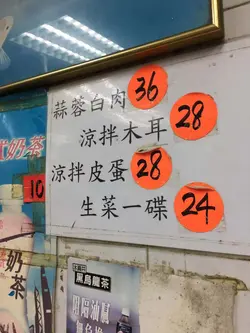 蒜蓉白肉 36
涼拌木耳 28
涼拌皮蛋 28
生菜一碟 24
奶茶
10
奶茶
黑烏龍茶
阻隔油膩